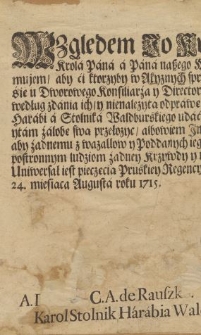 WZgledem To
Krolá Páná á Páná nászego
mujem/ aby ci ktorzyby w
sie u Dwornowego Konsiliarzá y Director
według zdania ich/ y nienależyta odprawe
Hárábi á Stolniká Waldburskiego udáć
żálobe swá przełożyć/ albowiem
aby żadnemu z wazallow y Poddánych
postronnym ludziom żadney Krzywdy y
Uniwersał iest pieczecia Pruskiey Regency
24. miesiaca Augusta roku 1715.
C. A. de Rauszk
Karol Stolnik Hárábia